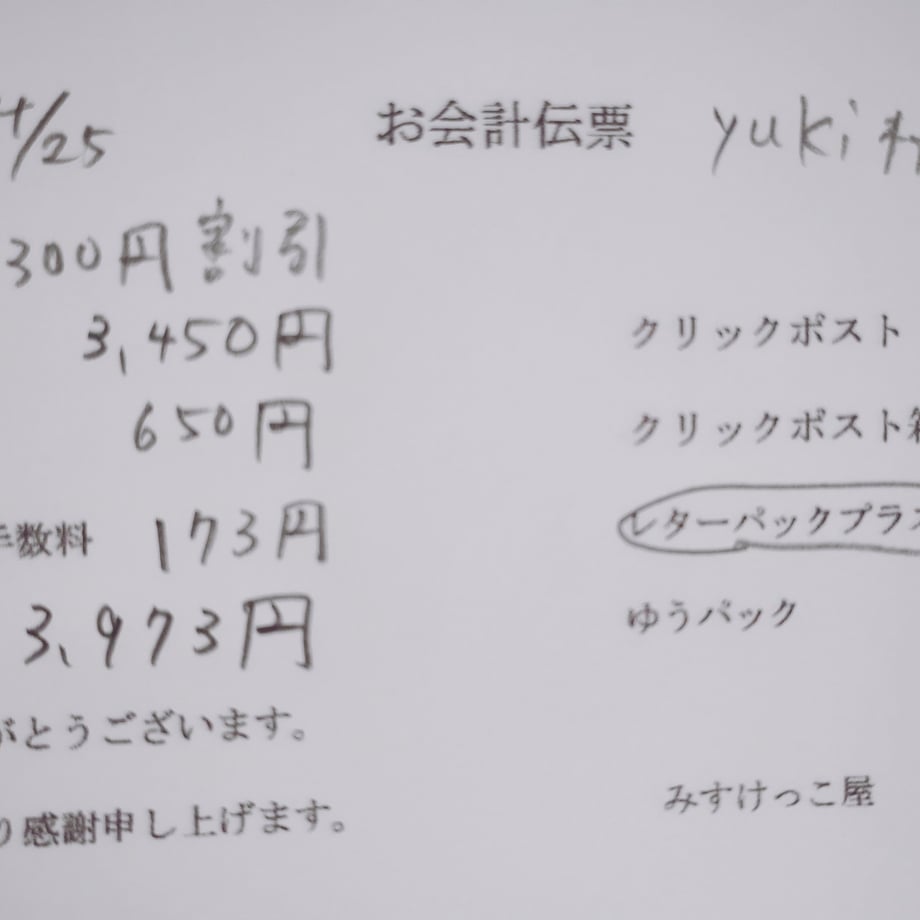 4/25 お会計伝票 yuki様
300円割引
3,450円 クリックポスト
650円 クリックポスト箱
手数料 173円 レターパックプラス
3,973円 ゆうパック
がとうございます。
り感謝申し上げます。 みすけっこ屋